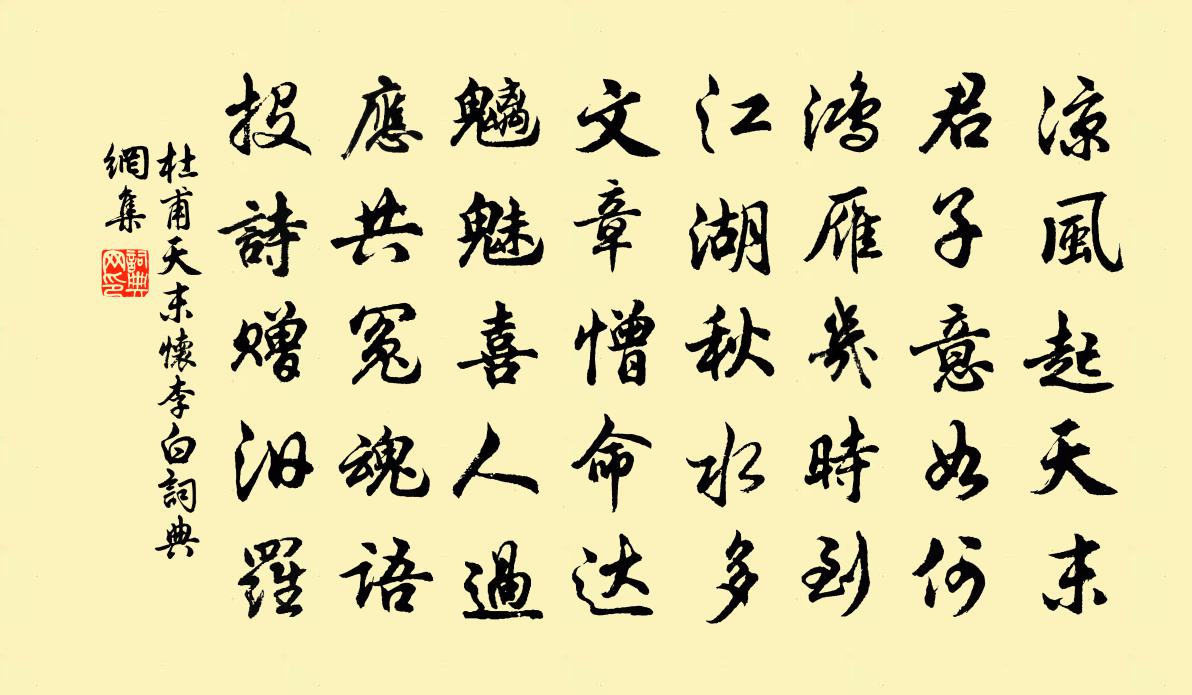 涼風起天末
君子意如何
鸿雁幾時到
江湖秋水多
文章憎命达
魑魅喜人過
應共冤魂语
投詩赠汨羅
杜甫天末懷李白詞典
網集
詞典
网印